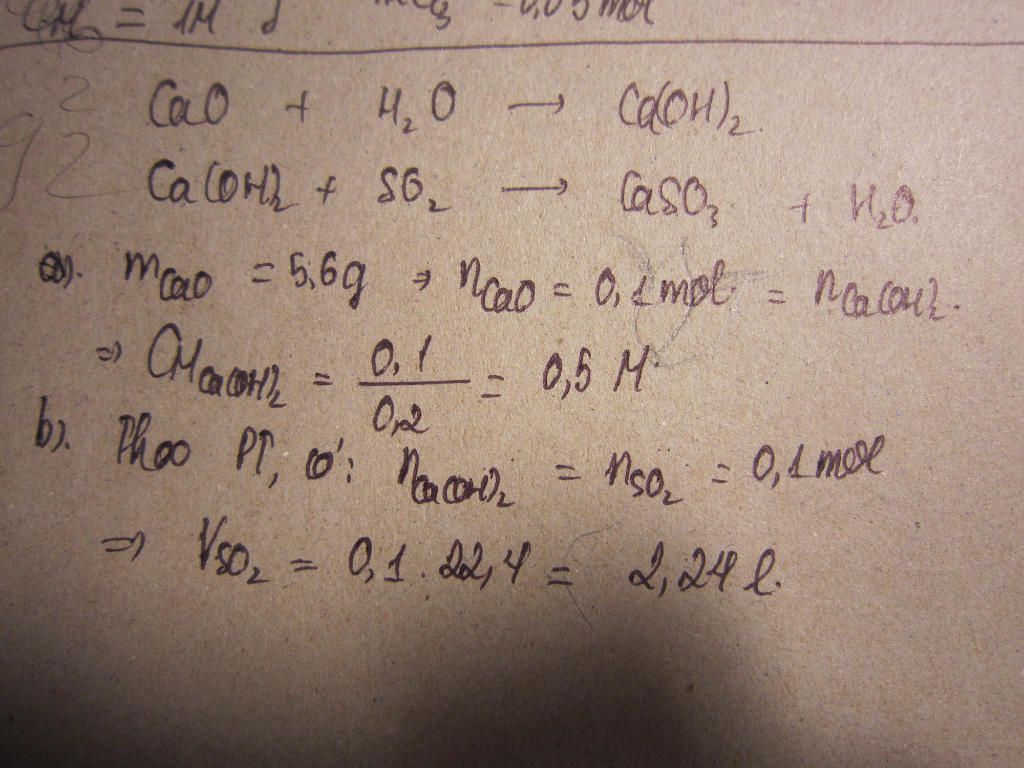 = 1M
CaO + H₂O → Ca(OH)₂.
Ca(OH)₂ + SO₂ → CaSO₃ + H₂O.
a). mCaO = 5,6g ⇒ nCaO = 0,1mol = nCa(OH)₂.
⇒ CMCa(OH)₂ = 0,1/0,2 = 0,5 M.
b). Theo PT, có: nCa(OH)₂ = nSO₂ = 0,1mol
⇒ VSO₂ = 0,1.22,4 = 2,24 l.